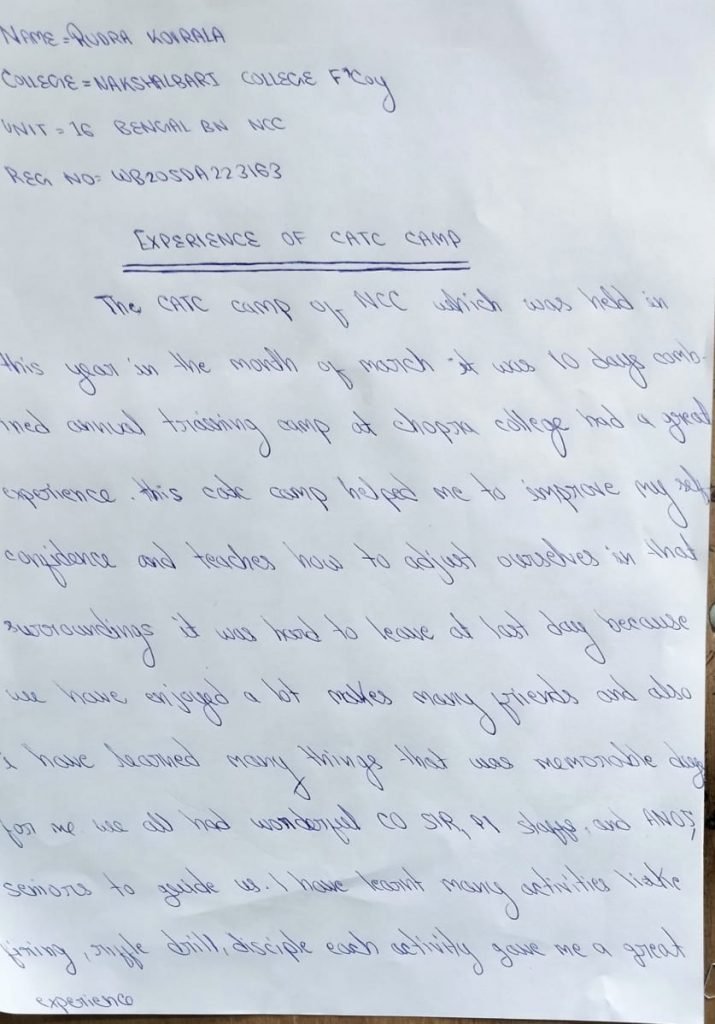 NAME = RUDRA KOIRALA
COLLEGE = NAKSHALBARI COLLEGE F"Coy
UNIT = 16 BENGAL BN NCC
REG NO = WB20SDA223163
EXPERIENCE OF CATC CAMP
The CATC camp of NCC which was held in
this year in the month of march it was 10 days comb-
ined annual training camp at chopra college had a great
experience. this catc camp helped me to improve my self
confidance and teaches how to adjust ourselves in that
surroundings it was hard to leave at last day because
we have enjoyed a lot makes many friends and also
i have learned many things that was memorable days
for me we all had wonderful CO SIR, PI staffs, and ANOS,
seniors to guide us. I have learnt many activities liake
firing, riffle drill, disciple each activity gave me a great
experience